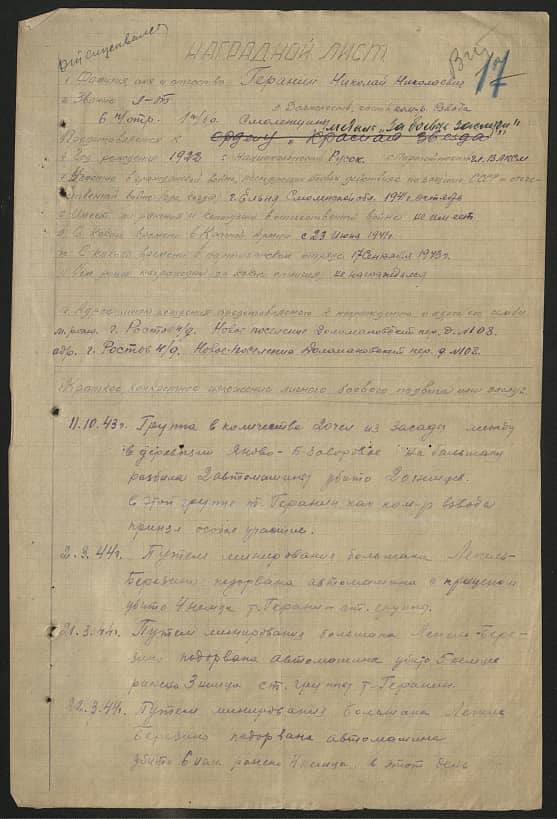 17
НАГРАДНОЙ ЛИСТ
1. Фамилия имя и отчество Геранин Николай Николаевич
2. Звание Л-нт 3. Должность, часть ком-р. взвода
6 п/отр. Смоленщина
медаль „За боевые заслуги"
Представляется к Ордену „Красная звезда"
4. Год рождения 1922 г. Национальность Русск. Партийность чл. ВЛКСМ
войне, последующих боевых действиях по защите СССР и отече-
ственной войне г. Ельня Смоленской обл. 1941 г. октябрь
Имеет ли ранения и контузии в отечественной войне не имеет
С какого времени в Красной Армии с 23 июня 1941 г.
С какого времени в партизанском отряде 17 сентября 1943 г.
Чем ранее награжден за какие отличия, не награждался
Адрес представляемого к награждению и адрес его семьи
г. Ростов н/д. Новое поселение Доломановский пер. д. № 108.
адр. г. Ростов н/д. Новое-поселение Доломановский пер. д. № 108.
Краткое конкретное изложение личного боевого подвига или заслуг
11.10.43г. Группа в количестве 20 чел из засады между
деревнями Яново - на большаке
разбила 2 автомашины убито 20 немцев.
В этой группе т. Геранин как ком-р взвода
принял особое участие.
2.3.44г. Путем минирования большака Лепель-
Березино подорвана автомашина с прицепом
убито 4 немца т. Геранин ст. группы.
21.3.44г. Путем минирования большака Лепель-Бере-
зино подорвана автомашина убито 5 немцев
ранено 3 немца ст. группы т. Геранин.
22.3.44г. Путем минирования большака Лепель
Березино подорвана автомашина
убито 6 нем. ранено 4 немца. в этот день